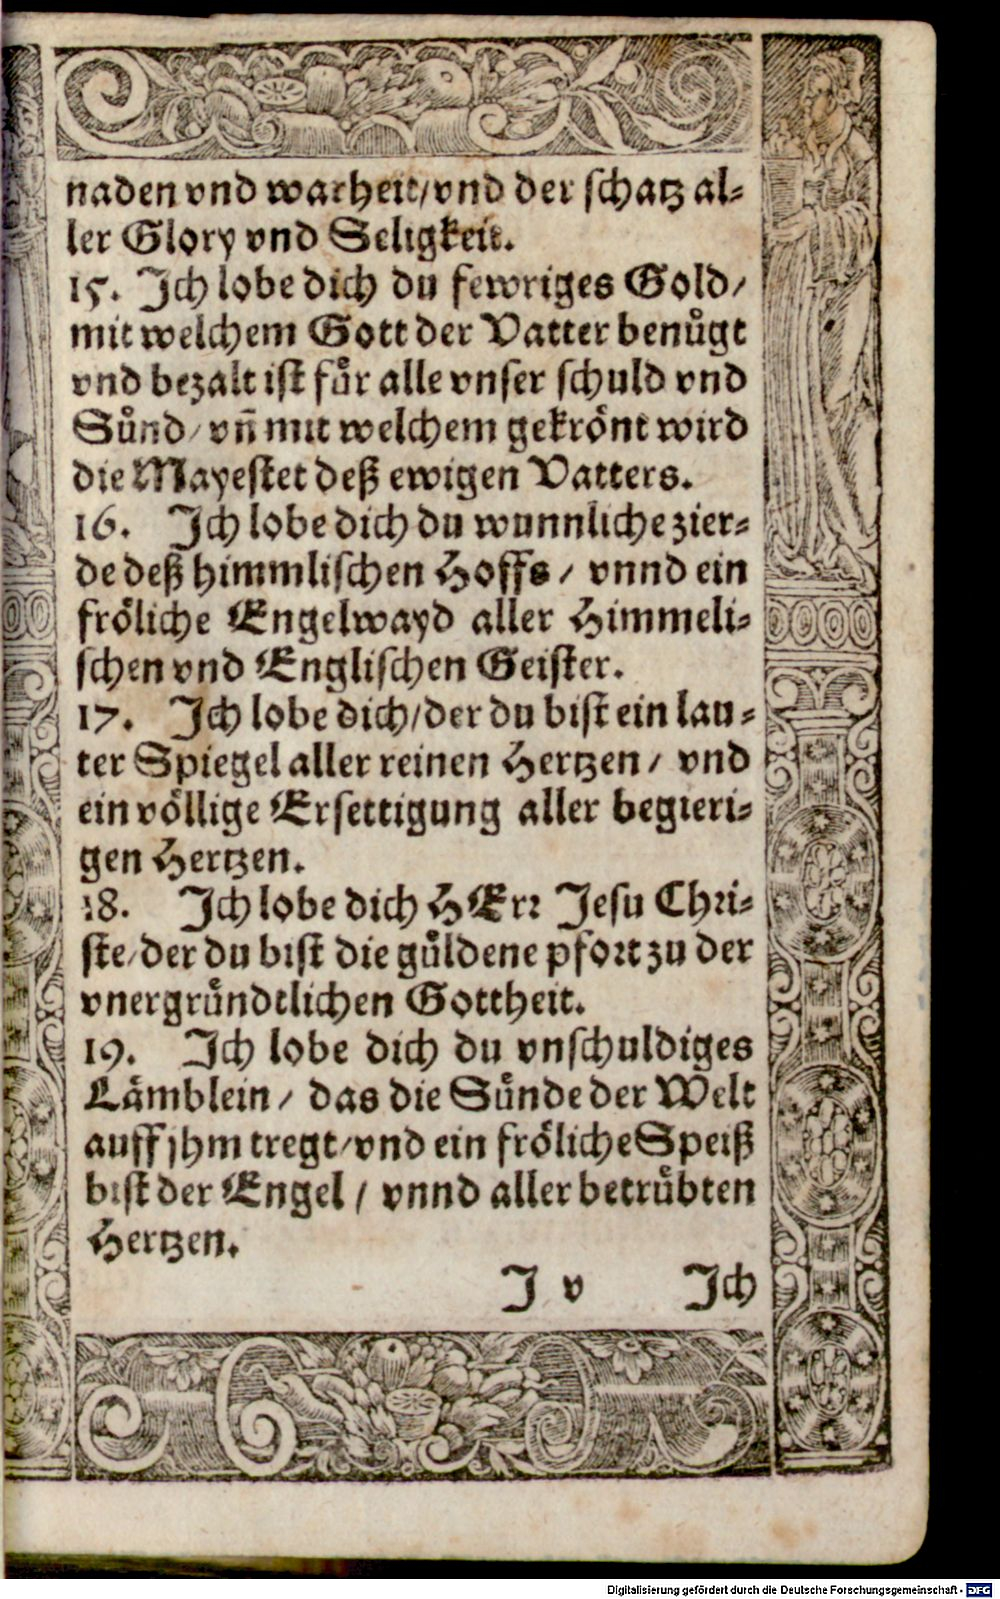 naden vnd warheit/vnd der schatz al⸗
ler Glory vnd Seligkeit.
15. Ich lobe dich du fewriges Gold/
mit welchem Gott der Vatter benuͤgt
vnd bezalt ist fuͤr alle vnser schuld vnd
Suͤnd/ vnñ mit welchem gekroͤnt wird
die Mayestet deß ewigen Vatters.
16. Ich lobe dich du wunnliche zier⸗
de deß himmlischen Hoffs / vnnd ein
froͤliche Engelwayd aller Himmeli⸗
schen vnd Englischen Geister.
17. Ich lobe dich/der du bist ein lau⸗
ter Spiegel aller reinen Hertzen / vnd
ein voͤllige Ersettigung aller begieri⸗
gen Hertzen.
18. Ich lobe dich HErr Jesu Chri⸗
ste/der du bist die guͤldene pfort zu der
vnergruͤndtlichen Gottheit.
19. Ich lobe dich du vnschuldiges
Laͤmblein / das die Suͤnde der Welt
auff jhm tregt/vnd ein froͤliche Speiß
bist der Engel / vnnd aller betruͤbten
Hertzen.
I v Ich
Digitalisierung gefördert durch die Deutsche Forschungsgemeinschaft - DFG